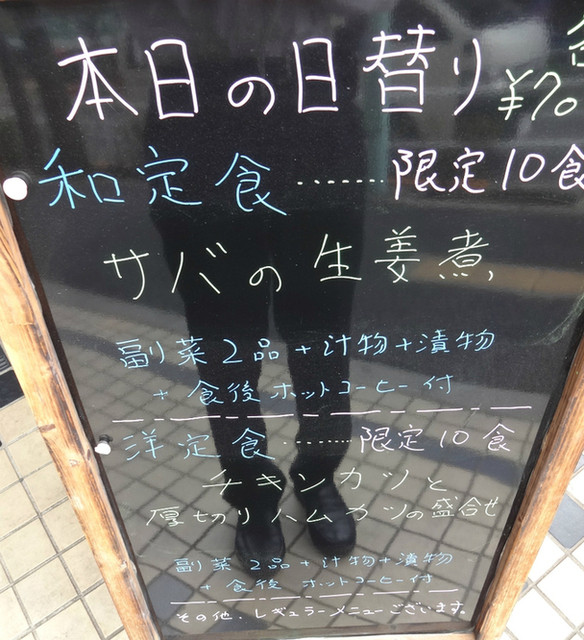 本日の日替り 各
¥70
和定食………限定10食
サバの生姜煮
副菜2品+汁物+漬物
+食後ホットコーヒー付
洋定食………限定10食
チキンカツと
厚切りハムカツの盛合せ
副菜2品+汁物+漬物
+食後 ホットコーヒー付
その他、レギュラーメニューございます。